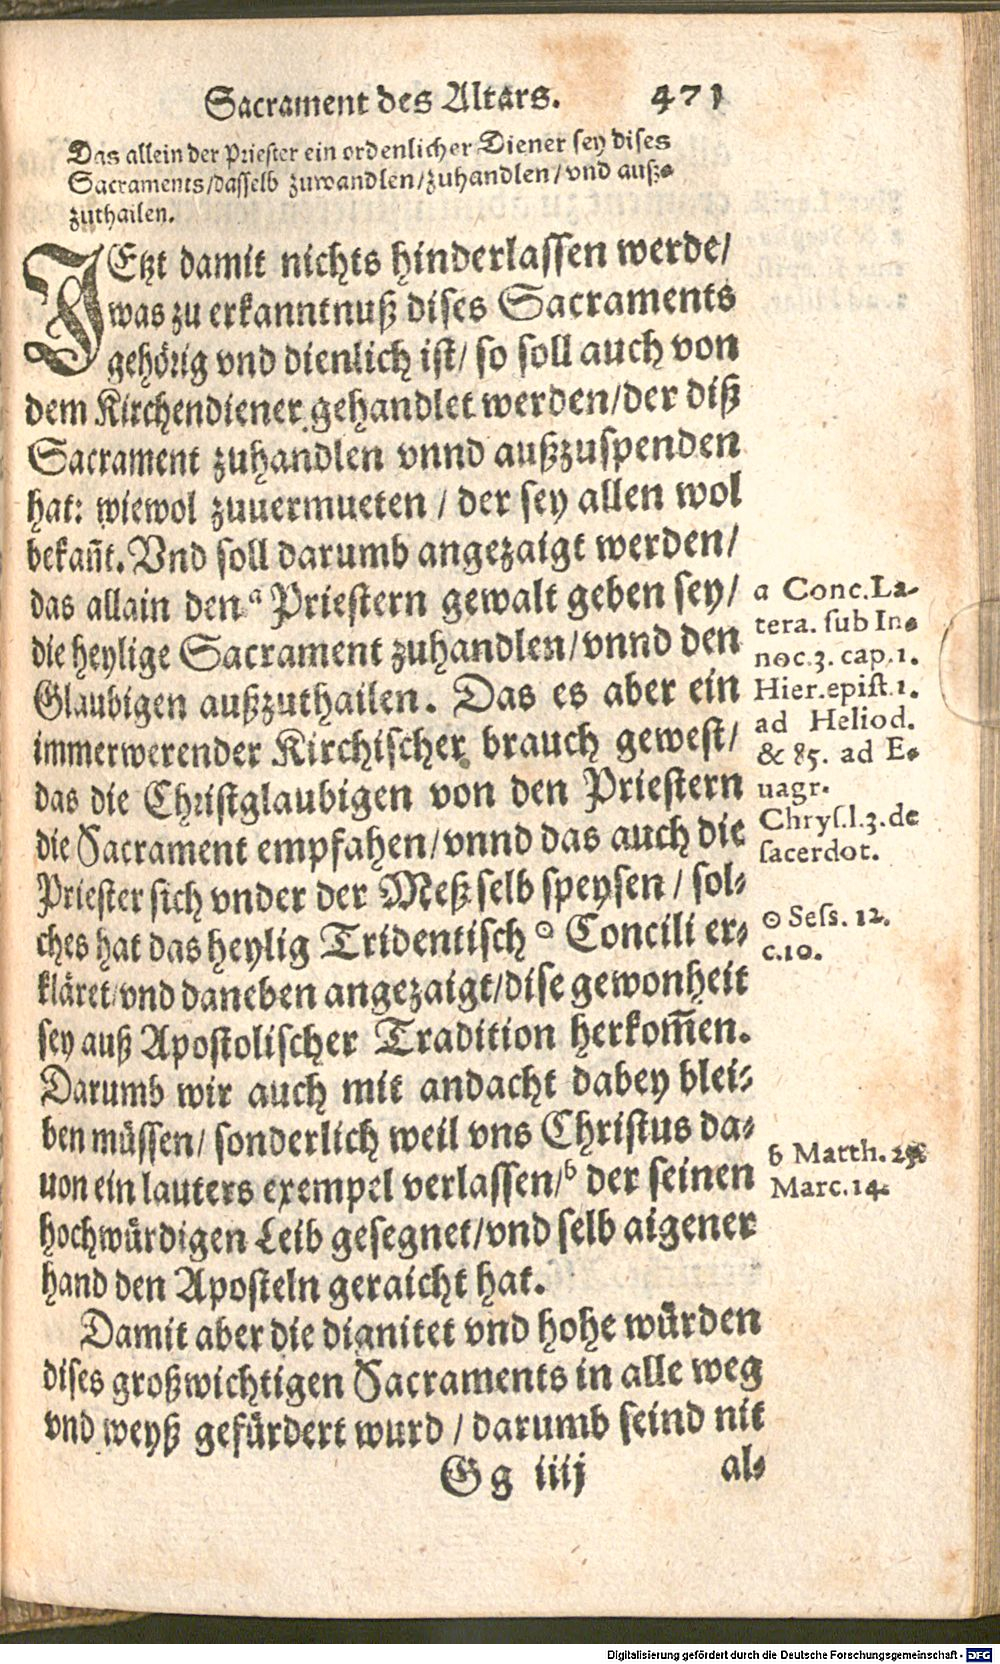 Sacrament des Altars. 471
Das allein der Priester ein ordenlicher Diener sey dises
Sacraments/dasselb zuwandlen/zuhandlen/vnd auß-
zuthailen.
JEtzt damit nichts hinderlassen werde/
was zu erkanntnuß dises Sacraments
gehörig vnd dienlich ist/ so soll auch von
dem Kirchendiener gehandlet werden/der diß
Sacrament zuhandlen vnnd außzuspenden
hat: wiewol zuuermueten / der sey allen wol
bekañt. Vnd soll darumb angezaigt werden/
das allain den ᵃ Priestern gewalt geben sey/
die heylige Sacrament zuhandlen/vnnd den
Glaubigen außzuthailen. Das es aber ein
immerwerender Kirchischer brauch gewest/
das die Christglaubigen von den Priestern
die Sacrament empfahen/vnnd das auch die
Priester sich vnder der Meß selb speysen / sol-
ches hat das heylig Tridentisch ☉ Concili er-
kläret/vnd daneben angezaigt/dise gewonheit
sey auß Apostolischer Tradition herkom̃en.
Darumb wir auch mit andacht dabey blei-
ben müssen/ sonderlich weil vns Christus da-
uon ein lauters exempel verlassen/ᵇ der seinen
hochwürdigen Leib gesegnet/vnd selb aigener
hand den Aposteln geraicht hat.
Damit aber die dignitet vnd hohe würden
dises großwichtigen Sacraments in alle weg
vnd weyß gefürdert wurd / darumb seind nit
Gg iiij al-
a Conc.La-
tera. sub In-
noc.3. cap.1.
Hier.epist.1.
ad Heliod.
& 85. ad E-
uagr.
Chrys.l.3.de
sacerdot.
☉ Sess. 12.
c.10.
b Matth. 26.
Marc.14.
Digitalisierung gefördert durch die Deutsche Forschungsgemeinschaft - DFG